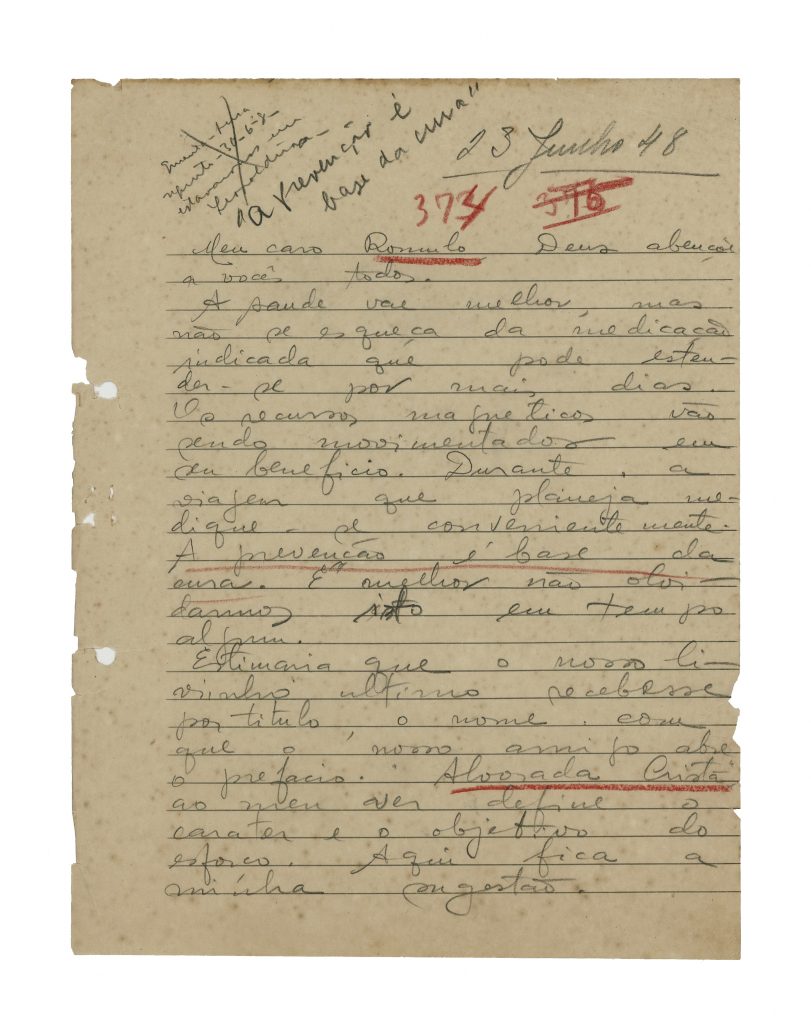 "A prevenção é
base da cura"
23 Junho 48
373 376
Meu caro Romulo Deus abençôe
a vocês todos.
A saude vae melhor, mas
não se esqueça da medicação
indicada que pode esten-
der-se por mais dias.
Os recursos magneticos vão
sendo movimentados em
seu beneficio. Durante a
viagem que planeja me-
dique-se convenientemente.
A prevenção é base da
cura. E' melhor não olvi-
darmos isto em tempo
algum.
Estimaria que o nosso li-
vrinho ultimo recebesse
por titulo o nome com
que o nosso amigo abre
o prefacio. "Alvorada Cristã"
ao meu ver define o
carater e o objetivo do
esforço. Aqui fica a
minha sugestão.